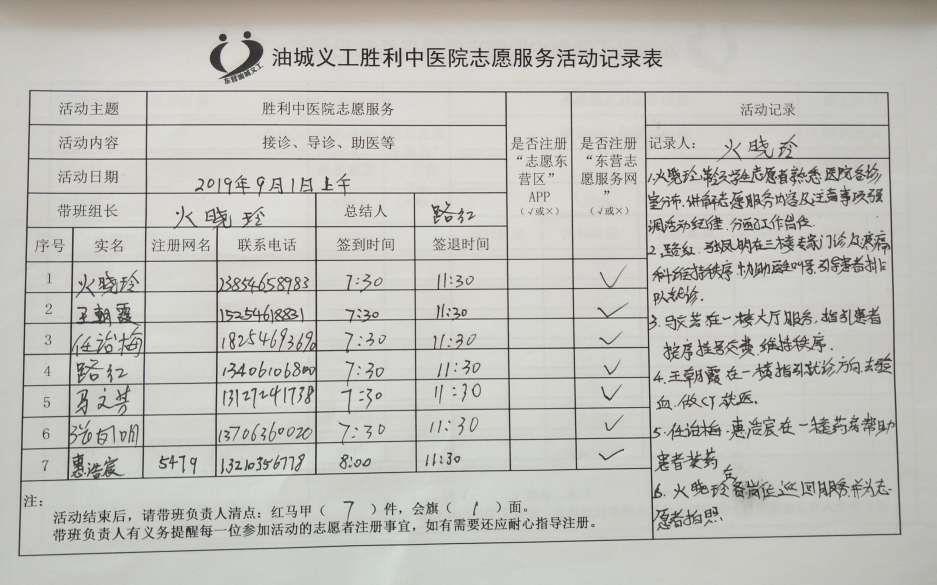 东营油城义工
油城义工胜利中医院志愿服务活动记录表
活动主题 胜利中医院志愿服务
活动内容 接诊、导诊、助医等
活动日期 2019年9月1日上午
带班组长 火晓玲 总结人 路红
是否注册“志愿东营区”APP（√或×）
是否注册“东营志愿服务网”（√或×）
序号 实名 注册网名 联系电话 签到时间 签退时间
1 火晓玲 13854658983 7:30 11:30 ✓
2 王朝霞 15254618831 7:30 11:30 ✓
3 任治梅 1825469369 7:30 11:30 ✓
4 路红 13406106800 7:30 11:30 ✓
5 马文芳 13127241738 7:30 11:30 ✓
6 13706360020 7:30 11:30 ✓
7 惠浩宸 5479 13210356778 8:00 11:30 ✓
活动记录
记录人：火晓玲
1.火晓玲 学生志愿者熟悉医院各诊
室分布,讲解志愿服务内容及注意事项,强
调活动纪律,分配工作岗位.
2.路红、在三楼专家门诊及疼痛
科维持秩序,协助医生叫号,引导患者排
队就诊.
3.马文芳在一楼大厅服务.指引患者
按序挂号交费.维持秩序.
4.王朝霞在一楼指引就诊方向,去验
血.做CT
5.任治梅、惠浩宸在一楼药房帮助
患者装药
6.火晓玲各岗位巡回服务并为志
愿者拍照
注：
活动结束后，请带班负责人清点：红马甲（ 7 ）件，会旗（ 1 ）面。
带班负责人有义务提醒每一位参加活动的志愿者注册事宜，如有需要还应耐心指导注册。